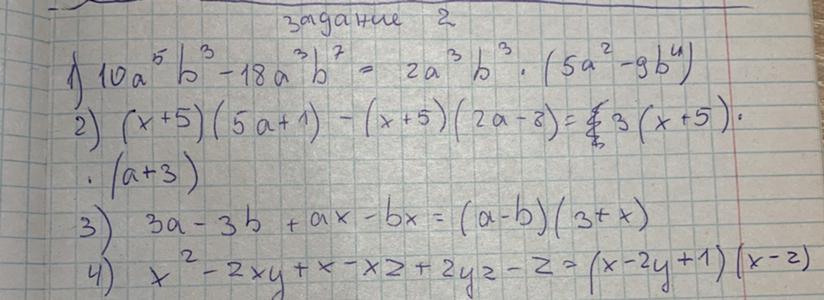 задание 2
1) 10a⁵b³ - 18a³b⁷ = 2a³b³ · (5a² - 9b⁴)
2) (x+5)(5a+1) - (x+5)(2a-8) = 3(x+5) ·
· (a+3)
3) 3a - 3b + ax - bx = (a-b)(3+x)
4) x² - 2xy + x - xz + 2yz - z = (x-2y+1)(x-z)